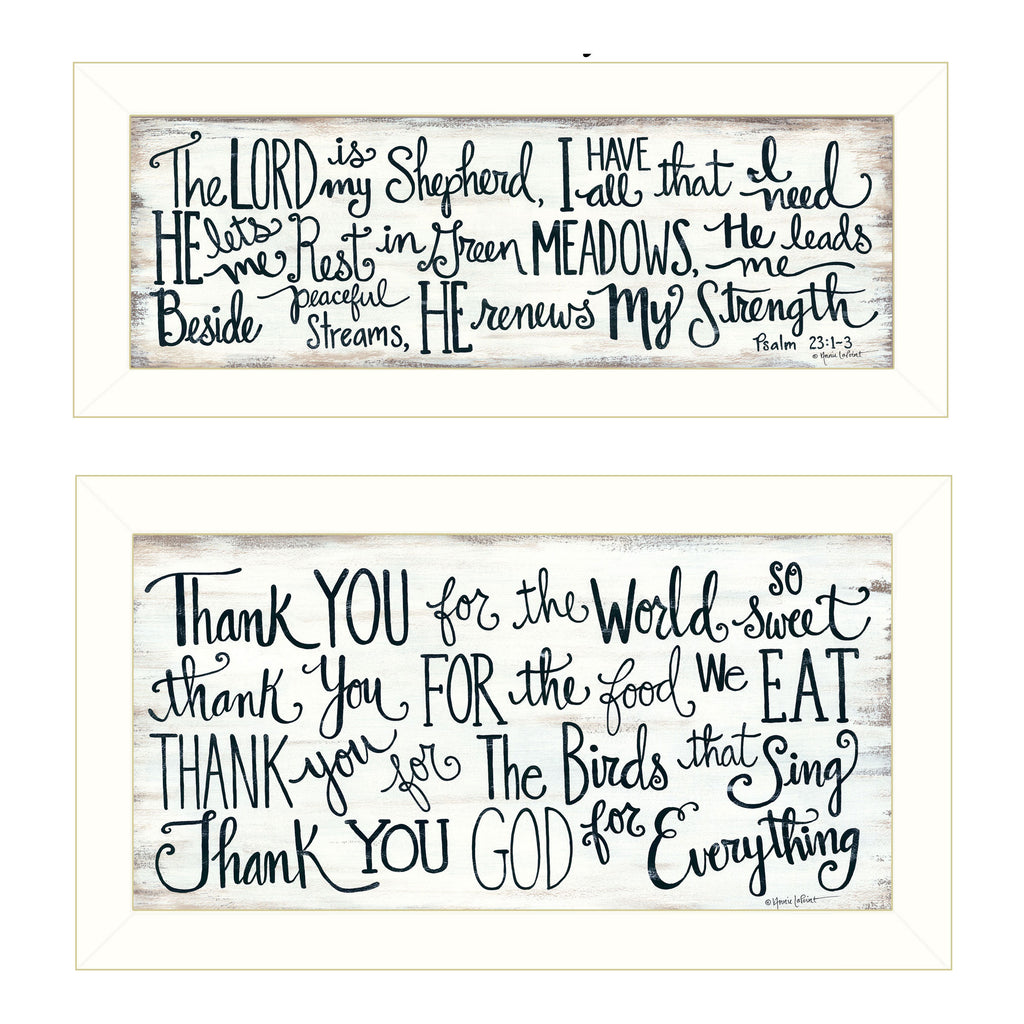 The LORD is my Shepherd, I HAVE all that I need
HE lets me Rest in Green MEADOWS, He leads me
Beside peaceful Streams, HE renews My Strength
Psalm 23:1-3
© Annie LaPoint
Thank YOU for the World so sweet
thank You FOR the food We EAT
THANK you for The Birds that Sing
Thank YOU GOD for Everything
© Annie LaPoint